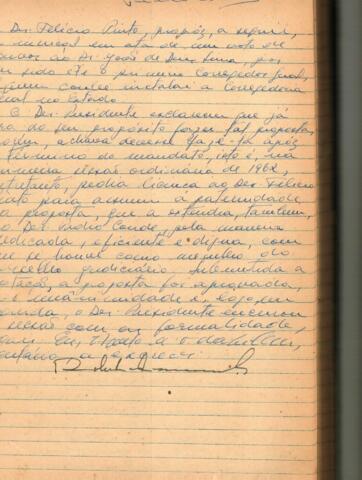 Des. Felício Pinto propôs, a seguir,
em ata de um voto de
ao Dr. José de Deus Lima, por
sido ele o primeiro Corregedor Geral,
instalar a Corregedoria
no Estado
O Des. Presidente esclareceu que já
era do seu propósito fazer tal proposta,
achava devesse fazê-la após
término do mandato, isto é, na
primeira sessão ordinária de 1962,
entretanto, pedia licença ao Des. Felício
Pinto para assumir a paternidade
da proposta, que a estendia, também,
ao Des. Indio Conde, pela maneira
dedicada, eficiente e digna, com
que se houve como membro do
Conselho Judiciário. Submetida a
votação, a proposta foi aprovada,
à unanimidade e, logo em
seguida, o Des. Presidente encerrou
a sessão com as formalidades,
Eu,
a escrevi